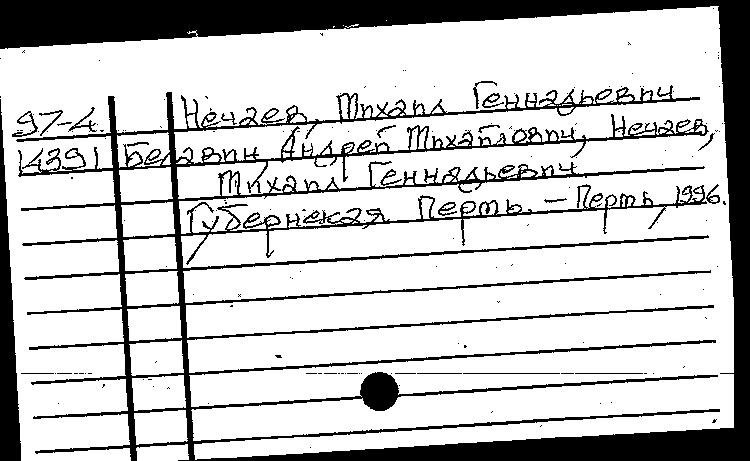 97-4. Нечаев, Михаил Геннадьевич
14391 Белавин, Андрей Михайлович, Нечаев,
Михаил Геннадьевич.
Губернская Пермь. – Пермь, 1996.